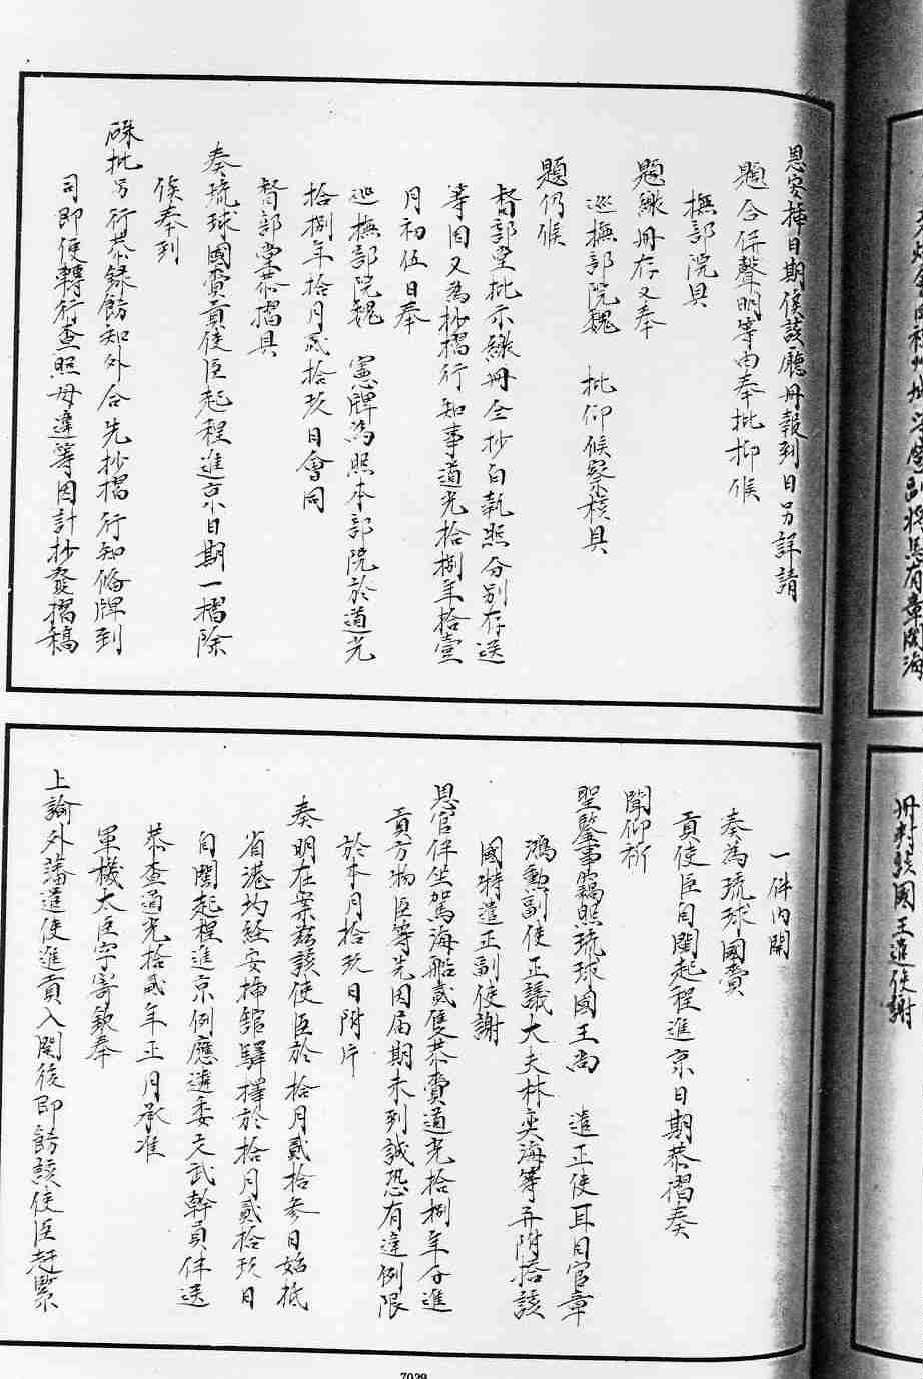 恩安揷日期俟該廳册報到日另詳請
題合併聲明等由奉批仰候
撫部院具
題繳册存又奉
巡撫部院魏　批仰候察核具
題仍候
督部堂批示繳册仝抄白執照分别存送
等因又為抄摺行知事道光拾捌年拾壹
月初伍日奉
巡撫部院魏　憲牌為照本部院於道光
拾捌年拾月貳拾玖日會同
督部堂恭摺具
奏琉球國賫貢使臣起程進京日期一摺除
俟奉到
硃批另行恭錄飭知外合先抄摺行知俻牌到
司即便轉行查照毋違等因計抄發摺稿
一件内開
奏為琉球國賫
貢使臣自閩起程進京日期恭摺奏
聞仰祈
聖鑒事竊照琉球國王尚　遣正使耳目官章
鴻勳副使正議大夫林奕海等并附搭該
國特遣正副使謝
恩官伴坐駕海船貳隻恭賫道光拾捌年分進
貢方物臣等先因届期未到誠恐有違例限
於本月拾玖日附片
奏明在案兹該使臣於拾月貳拾叁日始抵
省港均經安揷館驛擇於拾月貳拾玖日
自閩起程進京例應遴委文武幹員伴送
恭查道光拾貳年正月承准
軍機大臣字寄欽奉
上諭外藩遣使進貢入閩後即飭該使臣赶緊
册封該國王遣使謝
7039